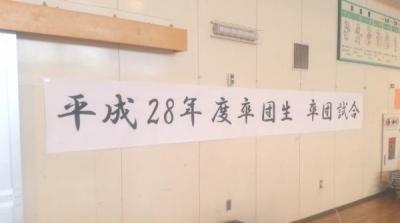 平成28年度卒団生 卒団試合